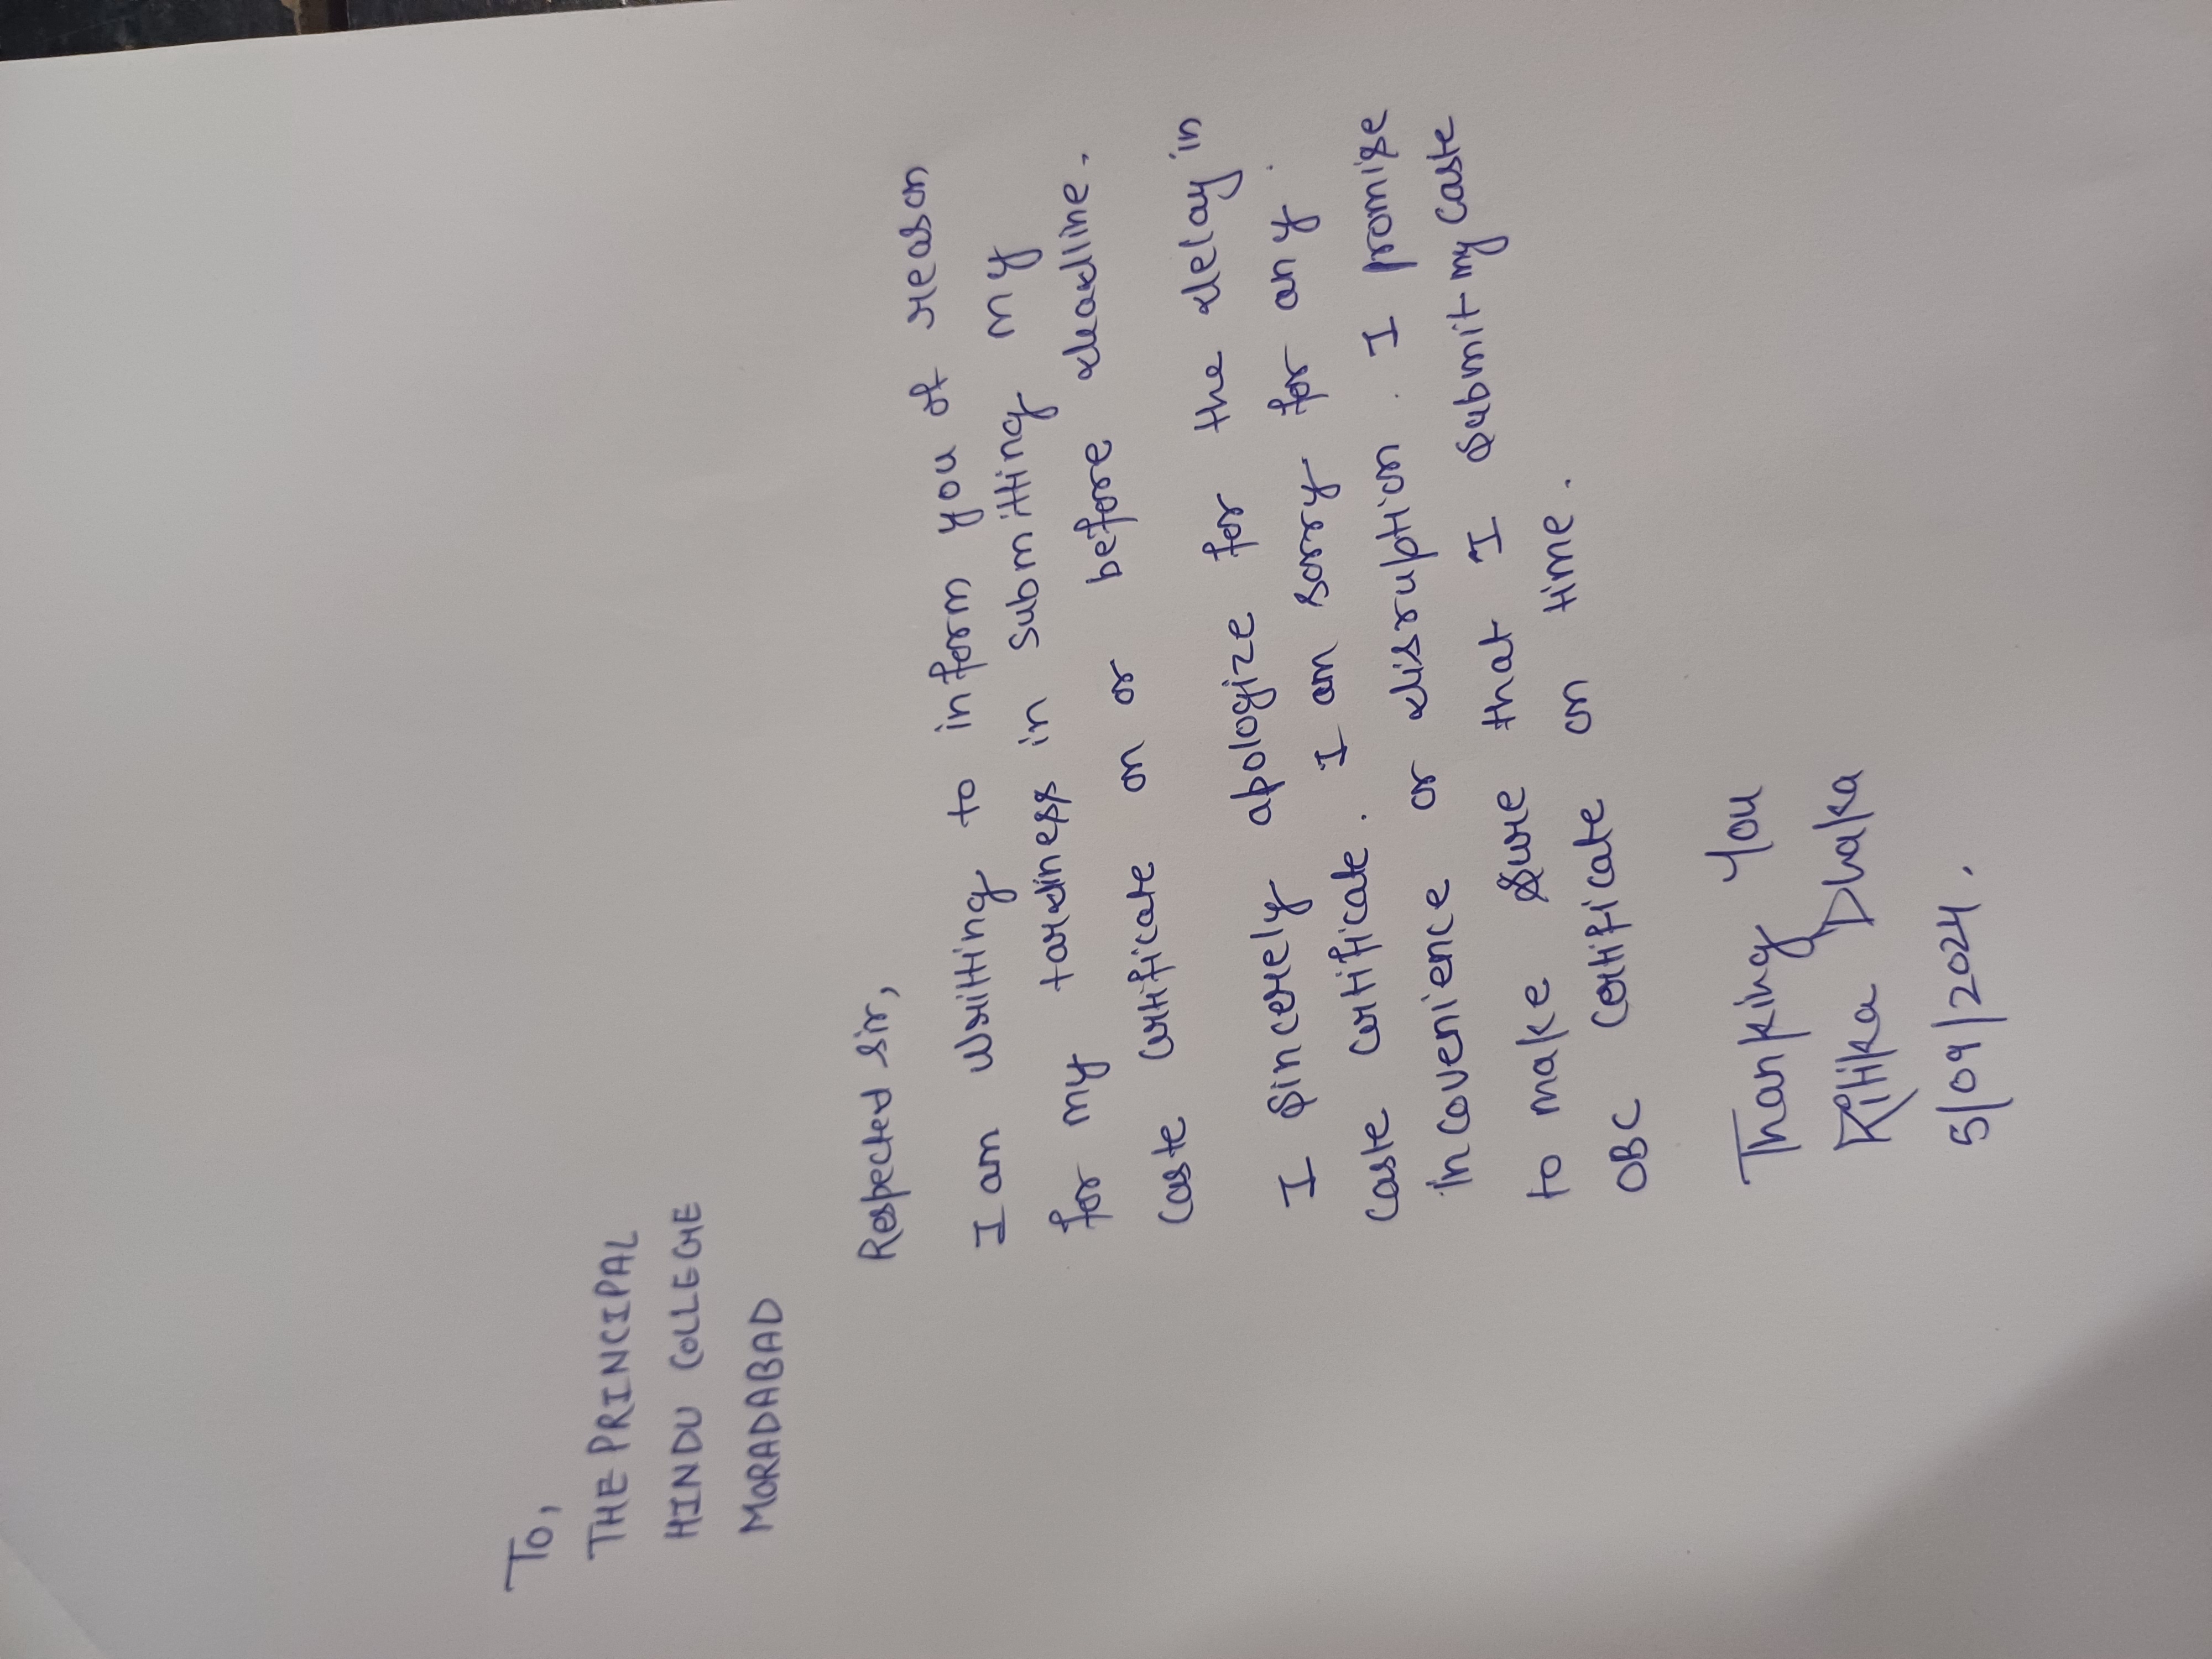 To,
THE PRINCIPAL
HINDU COLLEGE
MORADABAD
Respected Sir,
I am writting to inform you of reason
for my tardiness in submitting my
caste certificate on or before deadline.
I sincerely apologize for the delay in
caste certificate. I am sorry for any.
incovenience or disruption. I promise
to make sure that I submit my caste
OBC certificate on time.
Thanking You
Kitika Dhaka
5/09/2024.